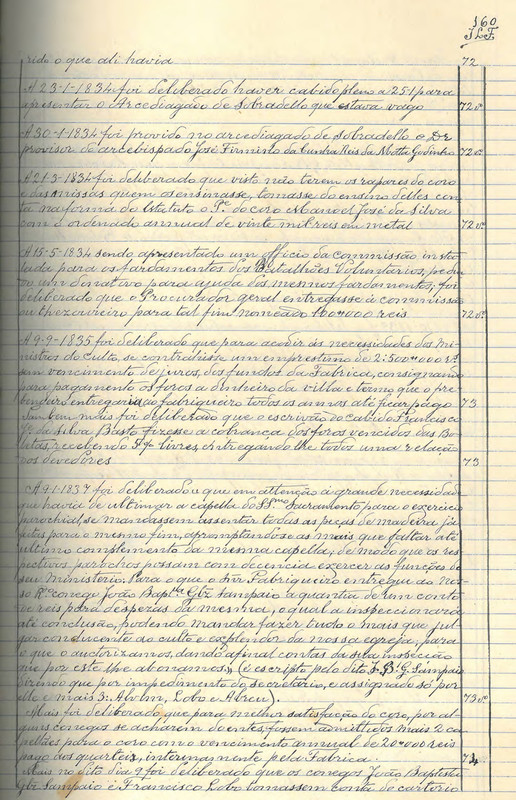 160
J L F
rido o que ali havia 72
A 23-1-1834 foi deliberado haver cabido pleno a 25-1 para
apresentar o Arcediagado de Sobradello que estava vago 72 vº
A 30-1-1834 foi provido no arcediagado de Sobradello o Dr
provisor do arcebispado José Firmino da Cunha Reis da Motta Godinho 72 vº
A 21-3-1834 foi deliberado que visto não terem os rapazes do coro
e das missas quem os ensinasse, tomasse do ensino delles con-
ta na forma do Estatuto o Pe do coro Manoel José da Silva
com o ordenado annual de vinte mil reis em metal 72 vº
A 15-5-1834 sendo apresentado um officio da commissão insta-
lada para os fardamentos dos Batalhões Voluntarios, pedin-
do um donativo para ajuda dos mesmos fardamentos, foi
deliberado que o Procurador geral entregasse á commissão
ou thezoureiro para tal fim nomeado 100$000 reis 72 vº
A 9-9-1835 foi deliberado que para acodir ás necessidades dos Mi-
nistros do Culto, se contrahisse um emprestimo de 2:500$000 rs
sem vencimento de juros, dos fundos da Fabrica, consignando
para pagamento os foros a dinheiro da villa e termo que o pre-
bendeiro entregaria ao fabriqueiro todos os annos até ficar pago 73
Tambem mais foi deliberado que o escrivão do cabido Francisco
Pa da Silva Basto fizesse a cobrança dos foros vencidos das Bo-
letas, recebendo livres, entregando lhe todos uma relação
dos devedores 73
A 9-1-1837 foi deliberado que em attenção á grande necessidade
que havia de ultimar a capella do SSmo Sacramento para o exercicio
parochial, se mandassem assentar todas as peças de madeira já
feitas para o mesmo fim, apromptando se as mais que faltar até
ultimo complemento da mesma capella, de modo que os res-
pectivos parochos possam com decencia exercer as funções de
seu ministerio. Para o que o Snr Fabriqueiro entregue ao Nos-
so Rmo conego João Bapta Glz Sampaio a quantia de um conto
de reis para despezas da mesma, o qual a inspeccionará
até conclusão, podendo mandar fazer tudo o mais que jul-
gar conducente ao culto e explendor da nossa egreja, para
o que o auctorizamos, dando afinal contas da sua inspecção
que por este lhe abonamos, (é escripto pelo dito J. B. G. Sampaio
dizendo que por impedimento do secretario, e assignado só por
elle e mais 3: Alvim, Lobo e Abreu). 73 vº
Mais foi deliberado, que para melhor satisfação do coro, por al-
guns conegos se acharem doentes, fossem admittidos mais 2 ca-
pellães para o coro com o vencimento annual de 20$000 reis
pago aos quarteis, interinamente pela Fabrica. 74
Mais no dito dia 9 foi deliberado que os conegos João Baptista
Glz Sampaio e Francisco Lobo tomassem conta do cartorio